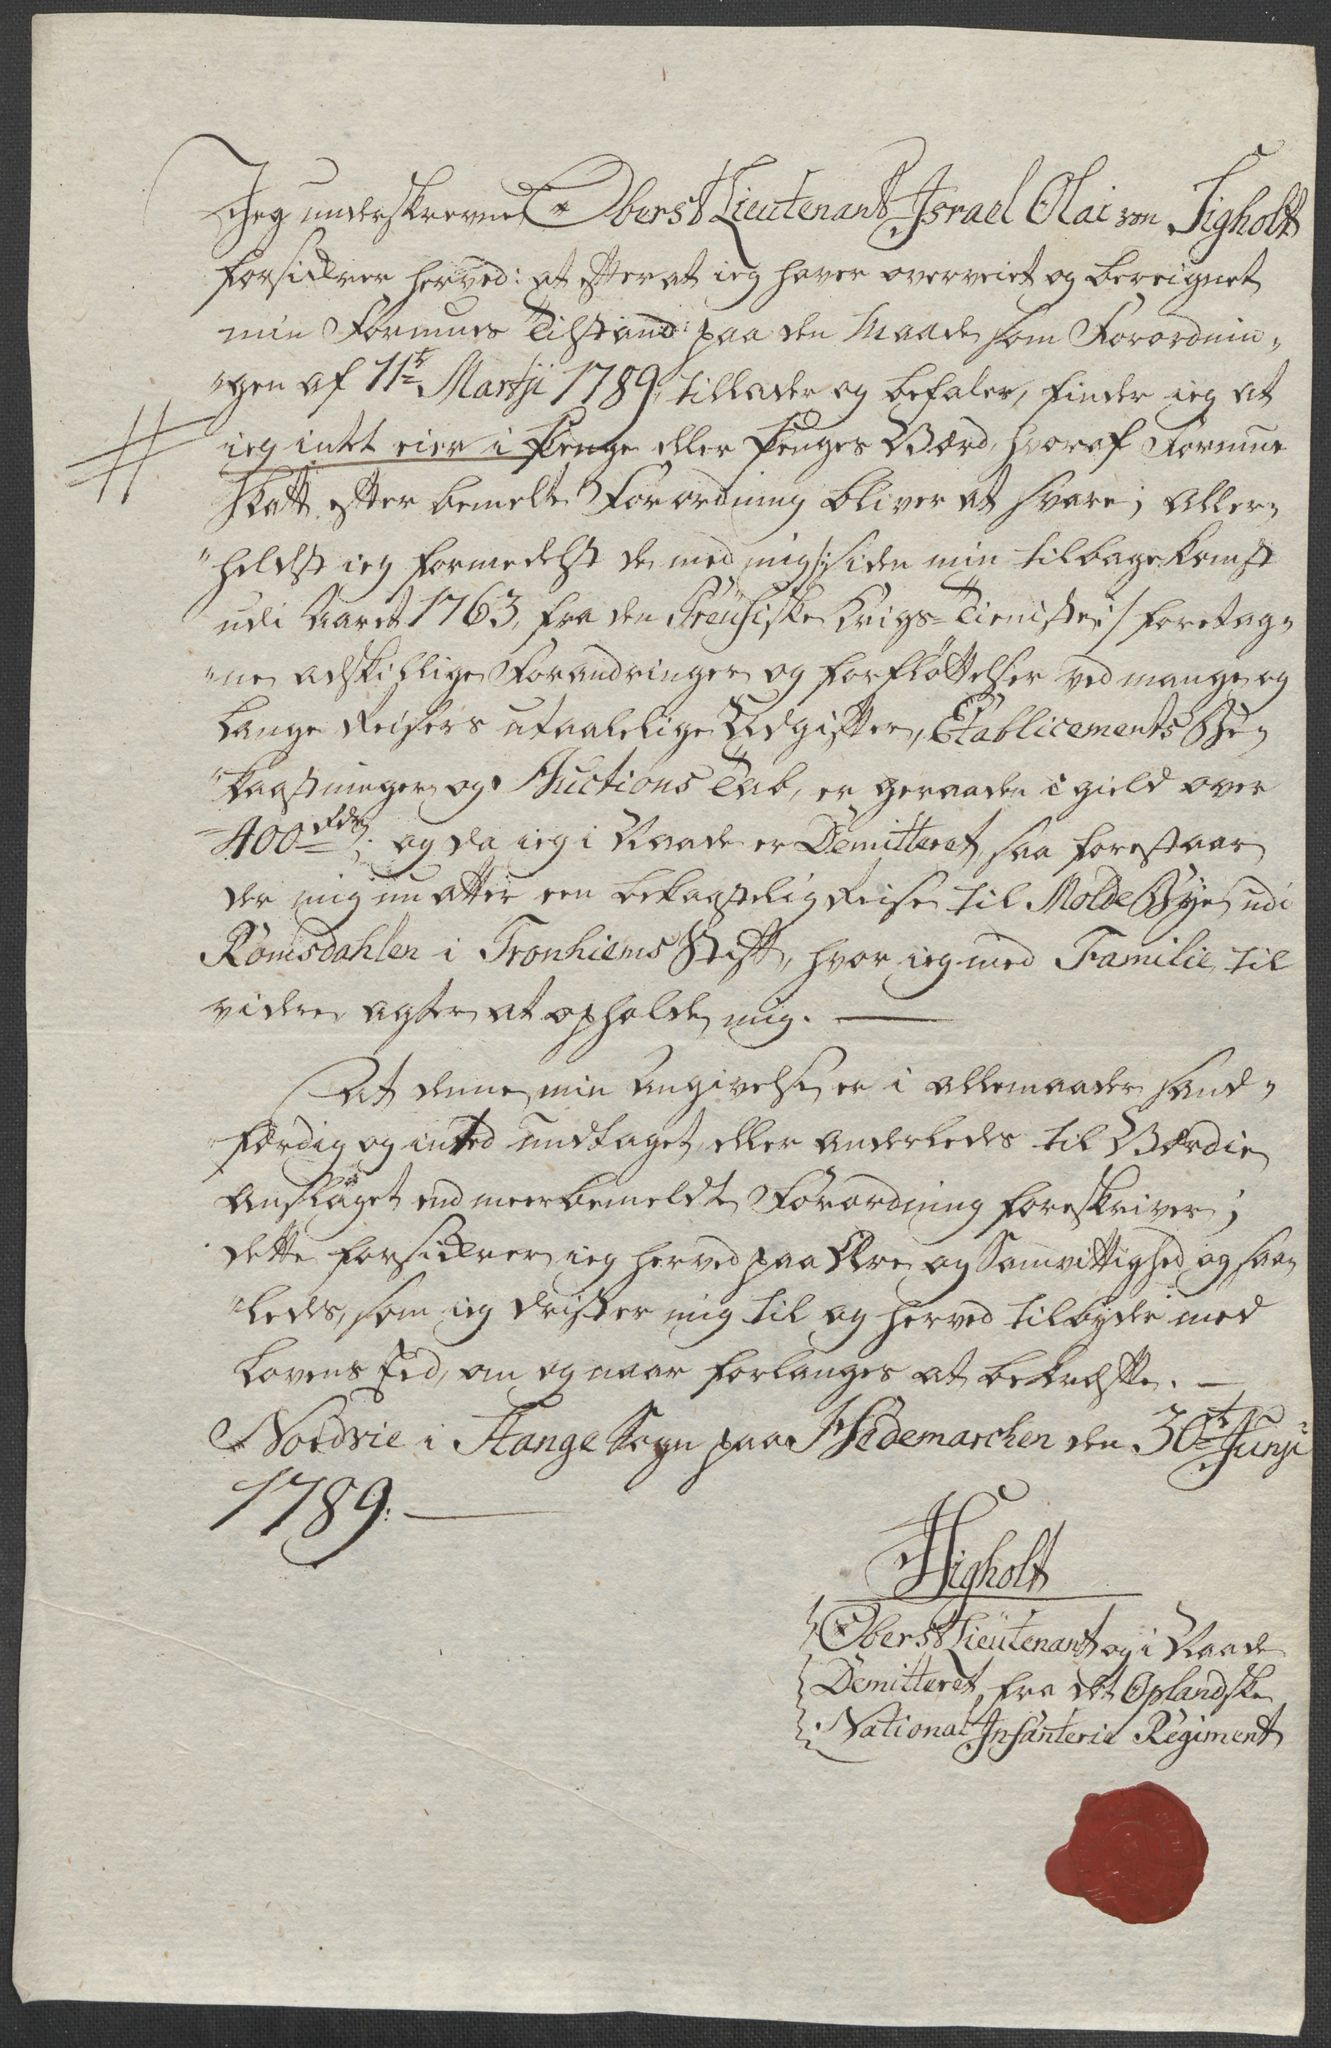 Jeg underskrevne Oberst Lieutenant Israel Olai von Sigholt
forsikrer herved: at efter at ieg haver overveiet og bereignet
min Formues Tilstand paa den Maade som Forordnin„
„gen af 11te Martji 1789, tillader og befaler, finder ieg at
ieg intet eier i Penge eller Penges Værd, hvoraf Formue
Skatt efter bemelte Forordning bliver at svare; Aller„
„heldst ieg formedelst de med mig /: siden min tilbagekomst
udi Aaret 1763, fra den Preusiske Krigs-Tieniste :/ foretag„
„ne adskillige Forandringer og Forfløttelser ved mange og
lange Reisers utaalelige Udgifter, Etablicements Be„
„kaastninger og Auctions Tab, er geraaden i gield over
400 rdr; og da ieg i Naade er Demitteret, saa forestaar
der mig nu atter een bekaastelig Reise til Molde Bye udi
Romsdahlen i Tronhiems Stift, hvor ieg med Familie til
videre agter at opholde mig. —
At denne min Angivelse er i allemaader sand„
færdig og inted undtaget eller anderledes til Værdie
Anslaget end meerbemeldte Forordning foreskriver;
dette forsikrer ieg herved paa Ære og Samvittighed og saa„
„ledes, som ieg drister mig til og herved tilbyder med
Lovens Eed, om og naar forlanges at bekræfte. —
Nordvie i Stange Sogn paa Hedemarchen den 30te Junji
1789. —
Sigholt
Oberst Lieutenant og i Naade
Demitteret fra det Oplandske
National Infanterie Regiment